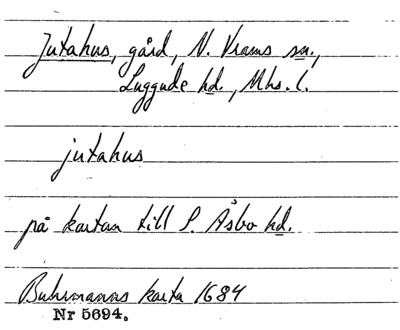 Jutahus, gård, N. Vrams sn.,
Luggude hd., Mhs. l.
jutahus
på kartan till S. Åsbo hd.
Buhrmanns karta 1684
Nr 5694.